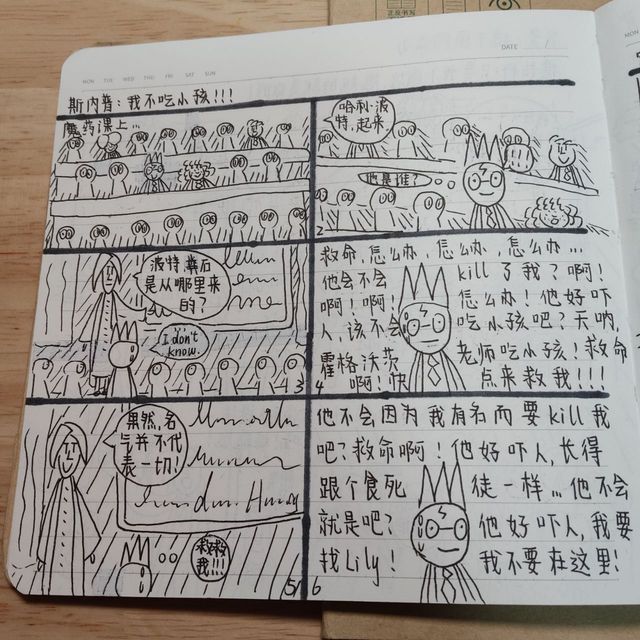 DATE
MON TUE WED THU FRI SAT SUN
斯内普：我不吃小孩！！！
魔药课上...
1
哈利·波
特，起来.
他是谁？
2
波特，粪石
是从哪里来
的？
I don't
know.
3
救命，怎么办，怎么办，怎么办...
他会不会 kill了我？啊！
啊！啊！ 怎么办！他好吓
人，该不会 吃小孩吧？天呐，
霍格沃茨 老师吃小孩！救命
啊！快 点来救我！！！
4
果然，名
气并不代
表一切！
救救
我!!!
5
他不会因为我有名而要kill我
吧？救命啊！他好吓人，长得
跟个食死 徒一样...他不会
就是吧？ 他好吓人，我要
找Lily！ 我不要在这里！
6
MON